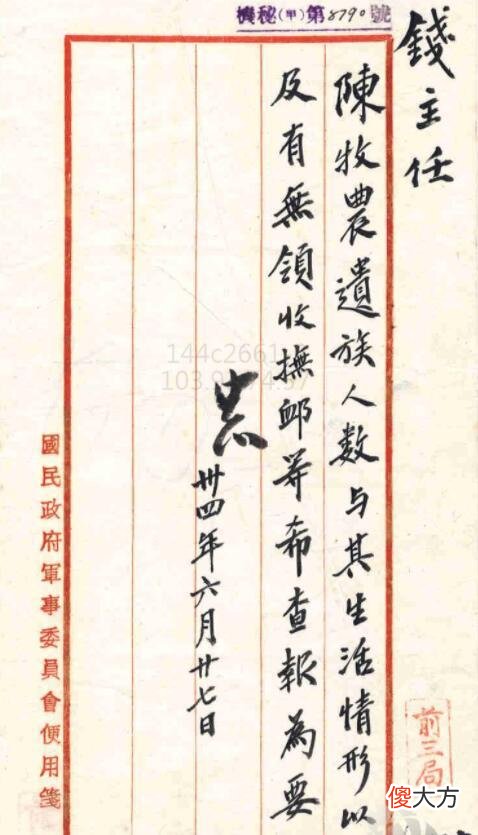 機秘(甲)第8790號
錢主任
陳牧農遺族人数与其生活情形以
及有無領收撫卹等希查報為要
卅四年六月廿七日
國民政府軍事委員會便用箋
前三局
傻大方